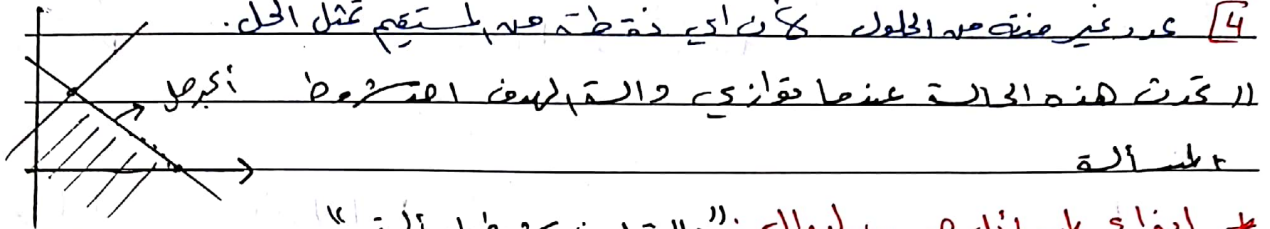 4 عدد غير منته من الحلول لأن أي نقطة من المستقيم تمثل الحل.
)) تحدث هذه الحالة عندما توازي دالة الهدف احد شروط
المسألة
أكبر حل